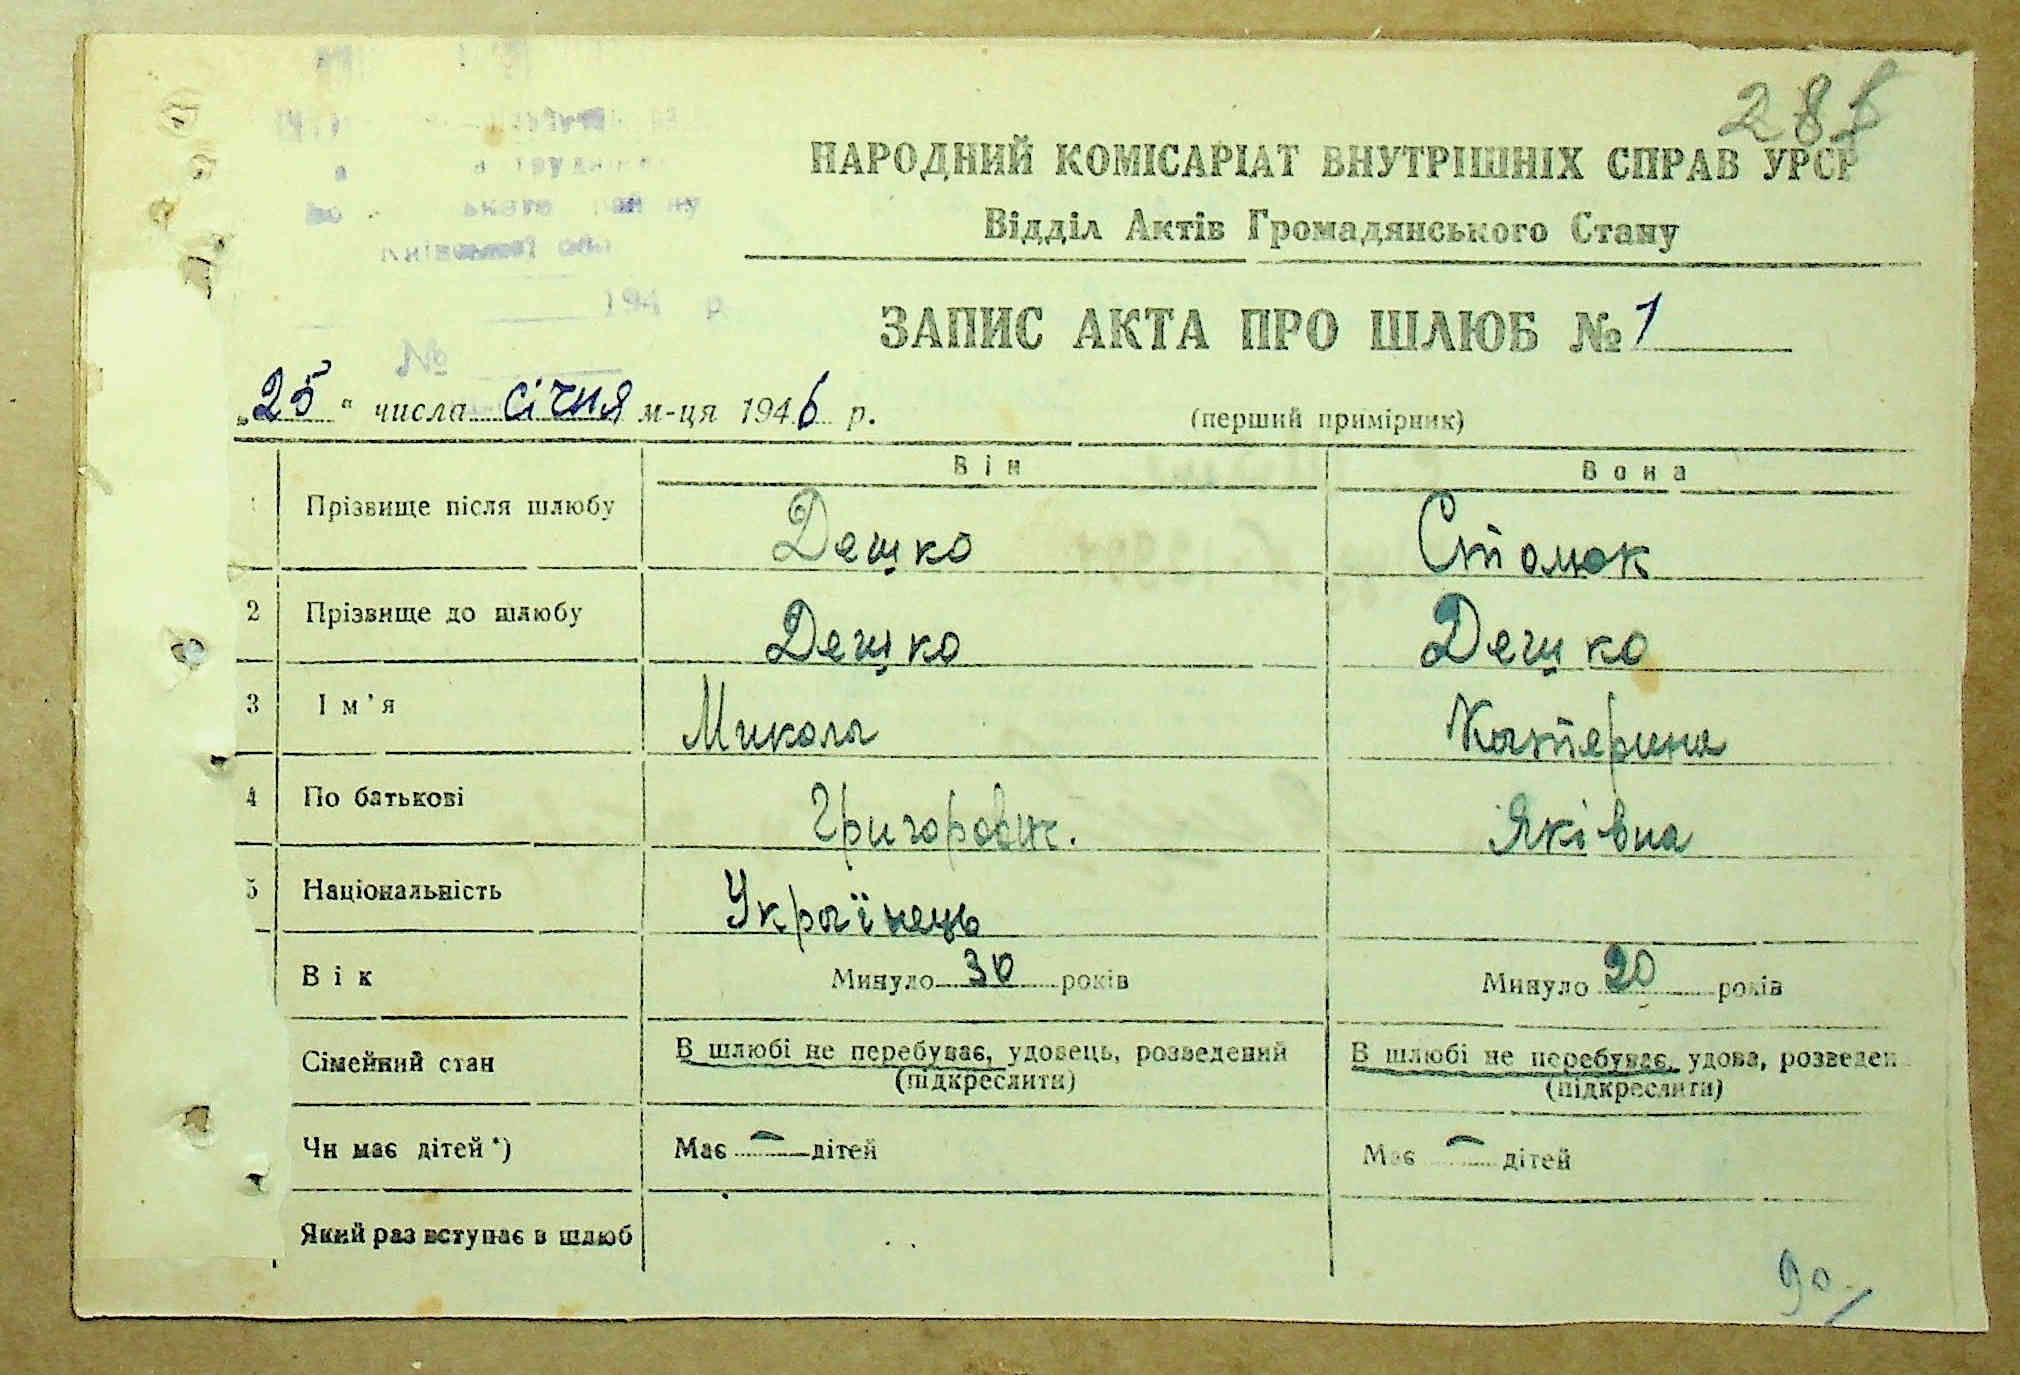 НАРОДНИЙ КОМІСАРІАТ ВНУТРІШНІХ СПРАВ УРСР
Відділ Актів Громадянського Стану
194 р
№
ЗАПИС АКТА ПРО ШЛЮБ № 1
„25“ числа січня м-ця 1946 р.
(перший примірник)
Він Вона
1 Прізвище після шлюбу Дешко
2 Прізвище до шлюбу Дешко Дешко
3 Ім'я Микола Катерина
4 По батькові Григоров. Яківна
5 Національність Українець
Вік Минуло 30 років Минуло 20 років
Сімейний стан В шлюбі не перебуває, удовець, розведений В шлюбі не перебуває, удова, розведен
(підкреслити) (підкреслити)
Чи має дітей *) Має — дітей Має — дітей
Який раз вступає в шлюб